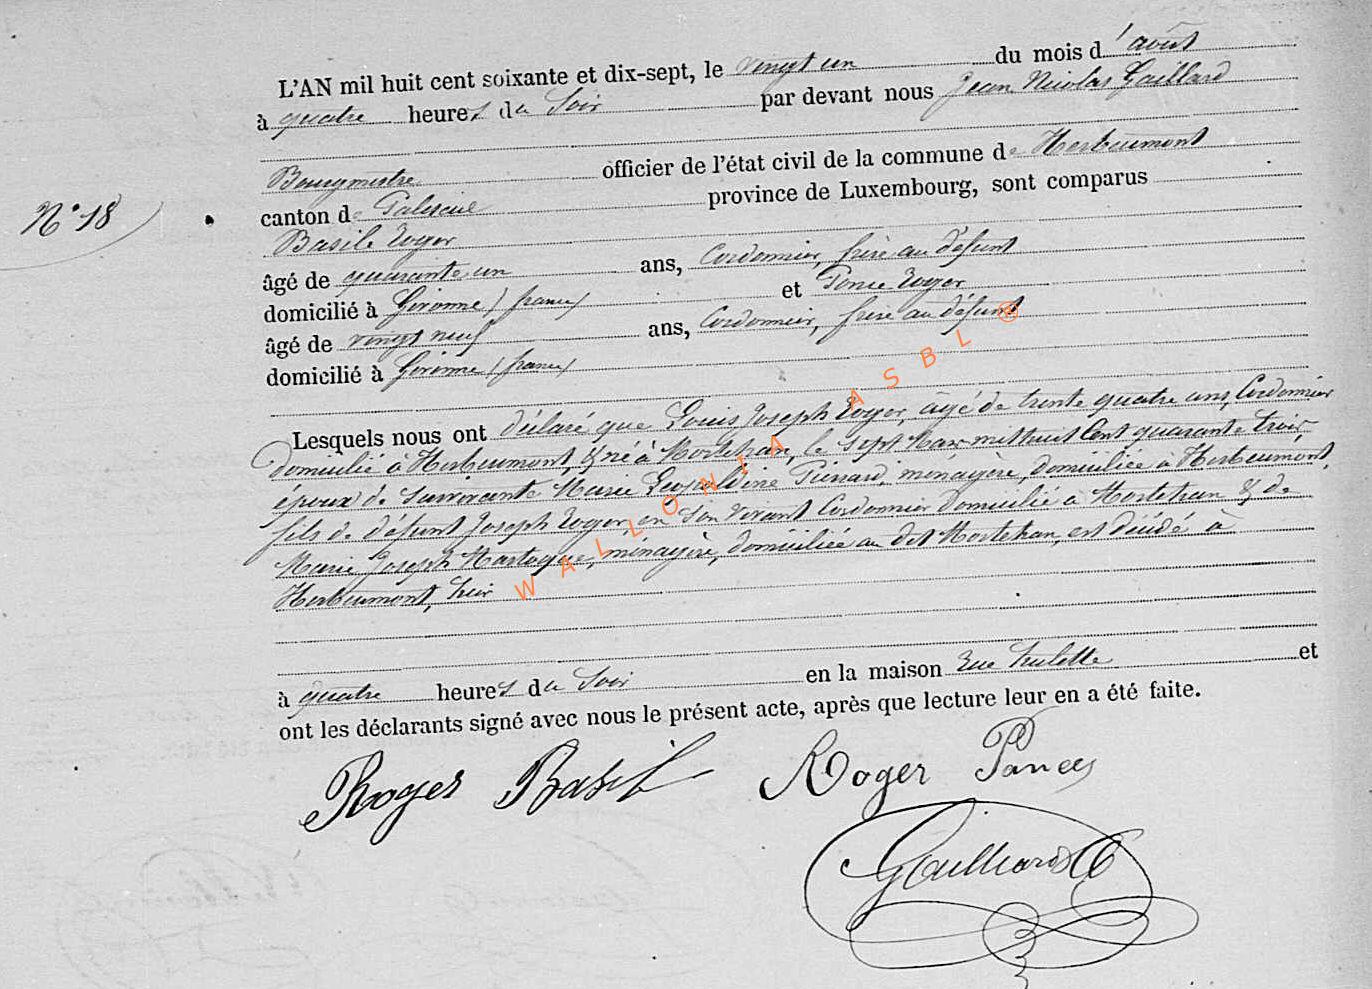 L'AN mil huit cent soixante et dix-sept, le vingt un du mois d'août
à quatre heures du Soir par devant nous Jean Nicolas Gaillard
Bourgmestre officier de l'état civil de la commune de Herbeumont
N° 18
canton de Paliseul province de Luxembourg, sont comparus
Basile Roger
âgé de quarante un ans, Cordonnier, frère au défunt
domicilié à Gironne (france) et Ponce Roger
âgé de vingt neuf ans, Cordonnier, frère au défunt
domicilié à Gironne (france)
Lesquels nous ont déclaré que Louis Joseph Roger, âgé de trente quatre ans, Cordonnier
domicilié à Herbeumont, & né à Mortehan, le sept Mars mil huit Cent quarante trois,
époux de Survivante Marie Léopoldine Pierrard, ménagère, domiciliée à Herbeumont,
fils de défunt Joseph Roger, en son vivant Cordonnier domicilié à Mortehan & de
Marie Joseph Martogue, ménagère, domiciliée au dit Mortehan, est décédé à
Herbeumont, hier
à quatre heures du Soir en la maison Rue et
ont les déclarants signé avec nous le présent acte, après que lecture leur en a été faite.
Roger Basil Roger Poncey
Gailliard
WALLONIA ASBL ®